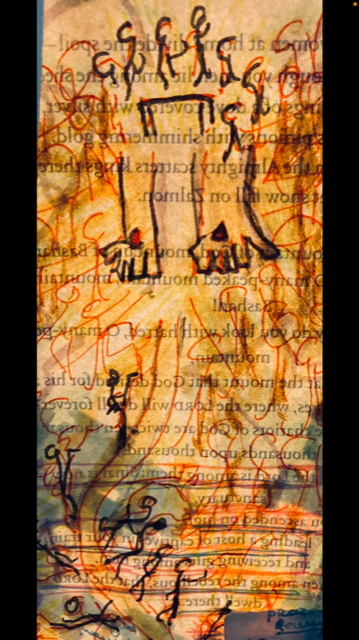 omen at home divide the spoil—
ough you men lie among the she
ngs of a dove covered with silver,
pinions with shimmering gold.
n the Almighty scatters kings there
t snow fall on Zalmon.
mountain of God, mountain of Bashan
O many-peaked mountain, mountain
Bashan!
y do you look with hatred, O many-pe
mountain,
at the mount that God desired for his a
es, where the LORD will dwell forever
e chariots of God are twice ten thousan
thousands upon thousands;
the Lord is among them; Sinai is now
sanctuary.
ou ascended on high,
leading a host of captives in your train
and receiving gifts among m
en among the rebellious, that the LORD
dwell there.